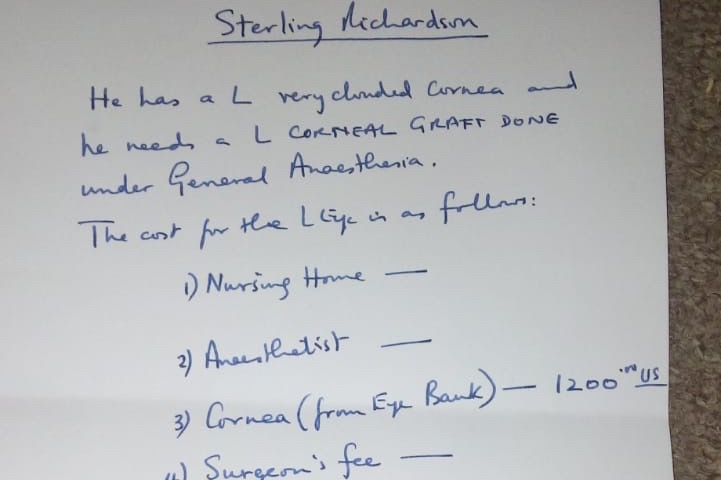 Sterling Richardson
He has a L very clouded Cornea and
he needs a L CORNEAL GRAFT DONE
under General Anaesthesia.
The cost for the L Eye is as follows:
1) Nursing Home —
2) Anaesthetist —
3) Cornea (from Eye Bank) — 1200 in US
4) Surgeon's fee —